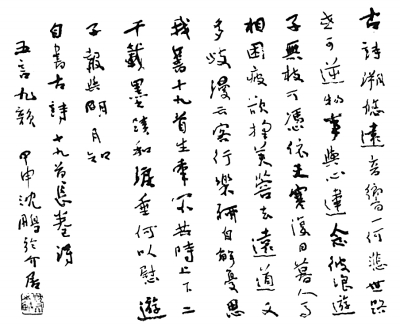 古詩溯悠遠音響一何悲世路
可逆物事與心違念彼浪遊
子無枝可憑依天寒復日暮人馬
相困疲欲去遠道又
多歧漫云客行樂聊自解憂思
我書十九首生年不共時上下二
千載墨蹟和淚垂何以慰遊
子報與明月知
自書古詩十九首長卷得
五言九韻 甲申沈鵬於介居